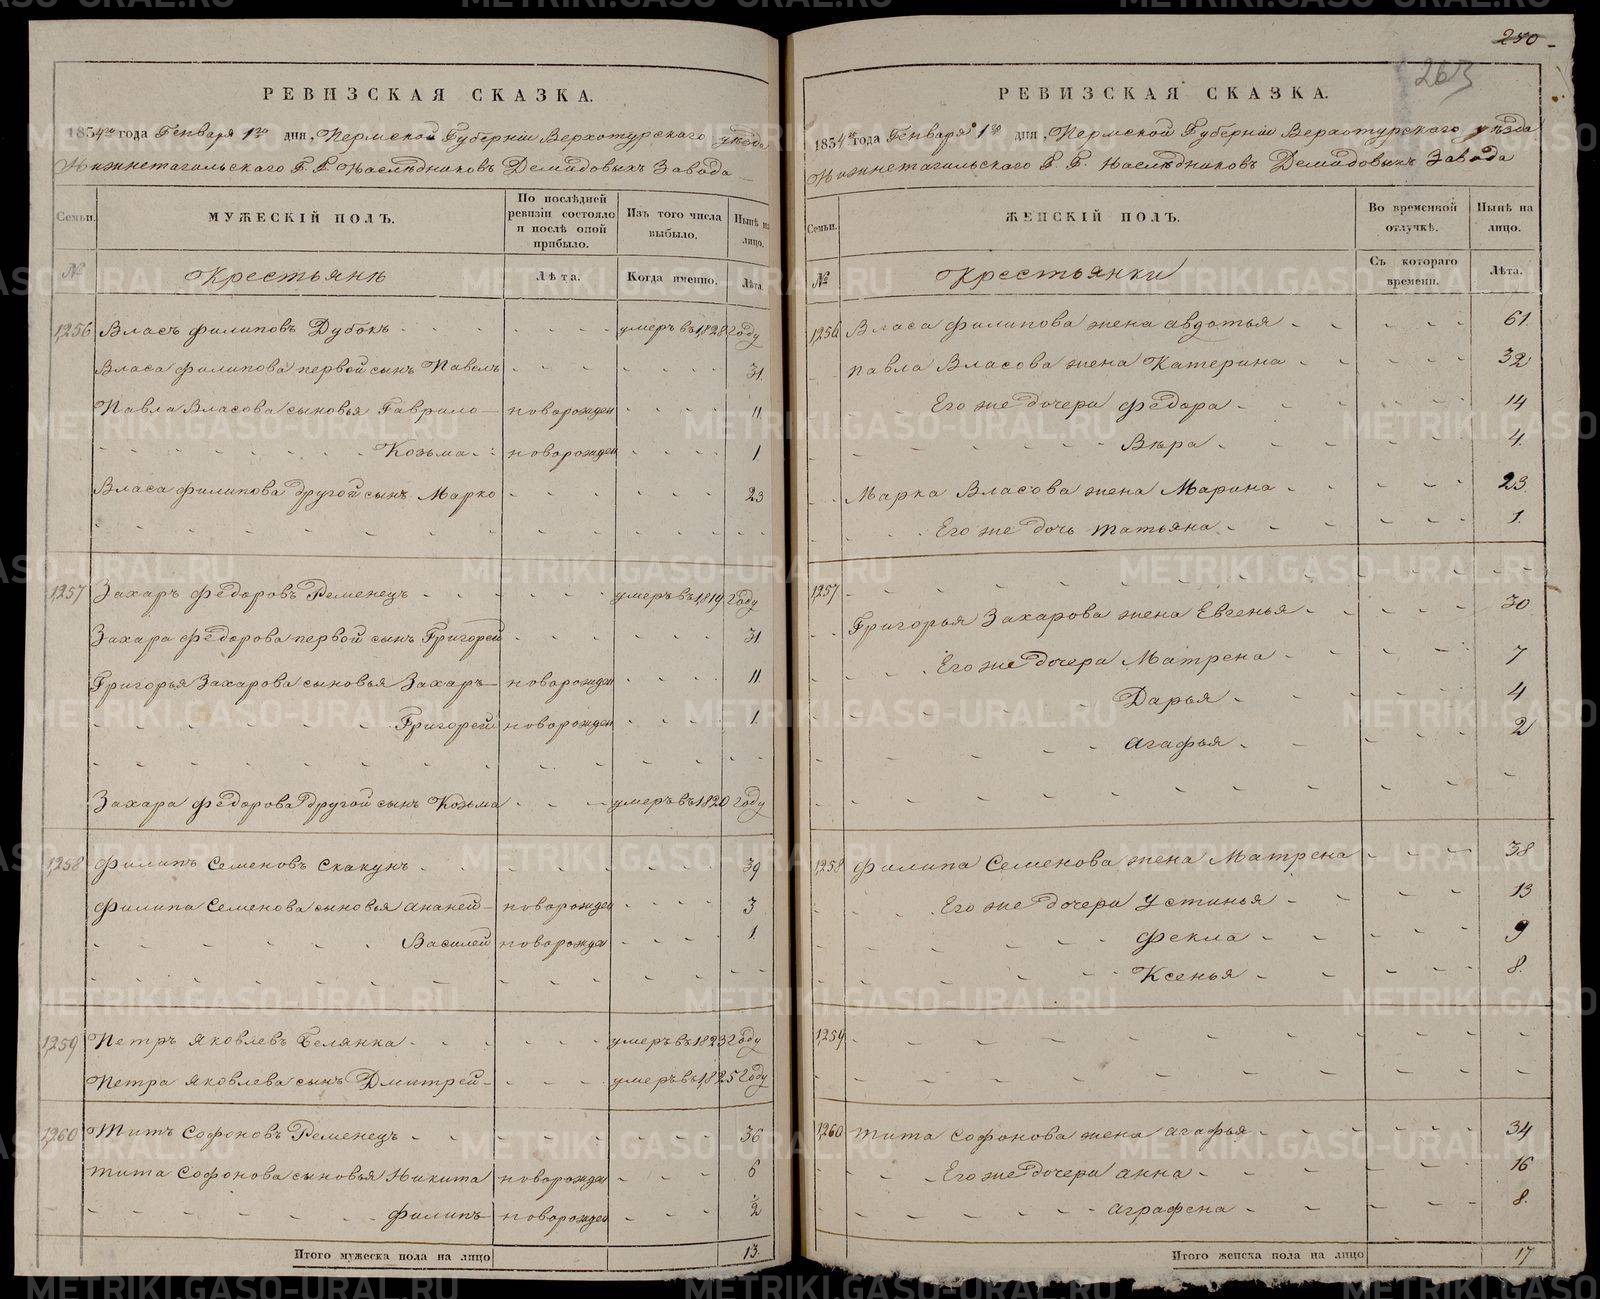 РЕВИЗСКАЯ СКАЗКА.
1834го года Генваря 1го дня, Пермской Губернiи Верхотурскаго уѣзда
Нижнетагильскаго Г. Г. Наслѣдниковъ Демидовыхъ Завода
Семьи.
МУЖЕСКIЙ ПОЛЪ.
По послѣдней ревизiи состояло и послѣ оной прибыло.
Изъ того числа выбыло.
Нынѣ на лицо.
№
Крестьянѣ
Лѣта.
Когда именно.
Лѣта.
1256 Власъ Филиповъ Дубокъ - умеръ въ 1828 году
Власа Филипова первой сынъ Павелъ - 31.
Павла Власова сыновья Гаврило - новорожден - 11
Козьма - новорожден - 1
Власа Филипова другой сынъ Марко - 23
1257 Захаръ Федоровъ Ременецъ - умеръ въ 1819 году
Захара Федорова первой сынъ Григорей - 31
Григорья Захарова сыновья Захаръ - новорожден - 11.
Григорей новорожден - 1.
Захара Федорова другой сынъ Козьма - умеръ въ 1820 году
1258 Филипъ Семеновъ Скакунъ - 39
Филипа Семенова сыновья Ананей - новорожден - 3
Василей новорожден - 1.
1259 Петръ Яковлевъ Белянка - умеръ въ 1823 году
Петра Яковлева сынъ Дмитрей - умеръ въ 1825 году
1260 Титъ Софоновъ Ременецъ - 36
Тита Софонова сыновья Никита новорожден - 6
Филипъ новорожден - 2
Итого мужеска пола на лицо 13.
250
263
РЕВИЗСКАЯ СКАЗКА.
1834го года Генваря 1го дня, Пермской Губернiи Верхотурскаго уѣзда
Нижнетагильскаго Г. Г. Наслѣдниковъ Демидовыхъ Завода
Семьи.
ЖЕНСКIЙ ПОЛЪ.
Во временной отлучкѣ.
Нынѣ на лицо.
№
Крестьянки
Съ котораго времени.
Лѣта.
1256 Власа Филипова жена Авдотья - 61.
Павла Власова жена Катерина - 32
Его же дочери Федора - 14
Вѣра - 4.
Марка Власова жена Марина - 23.
Его же дочь Татьяна - 1.
1257
Григорья Захарова жена Евгенья - 30
Его же дочери Матрена - 7
Дарья - 4
Агафья - 2
1258 Филипа Семенова жена Матрена - 38
Его же дочери Устинья - 13
Фекла - 9
Ксенья - 8.
1259
1260 Тита Софонова жена Агафья - 34
Его же дочери Анна - 16
Аграфена - 8.
Итого женска пола на лицо 17
METRIKI.GASO-URAL.RU